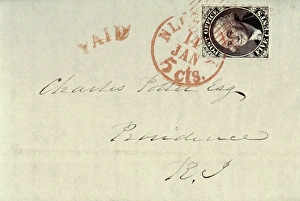 PAID
14
JAN
5 cts.
POST OFFICE
Charles Potter Esq
Providence
R.I